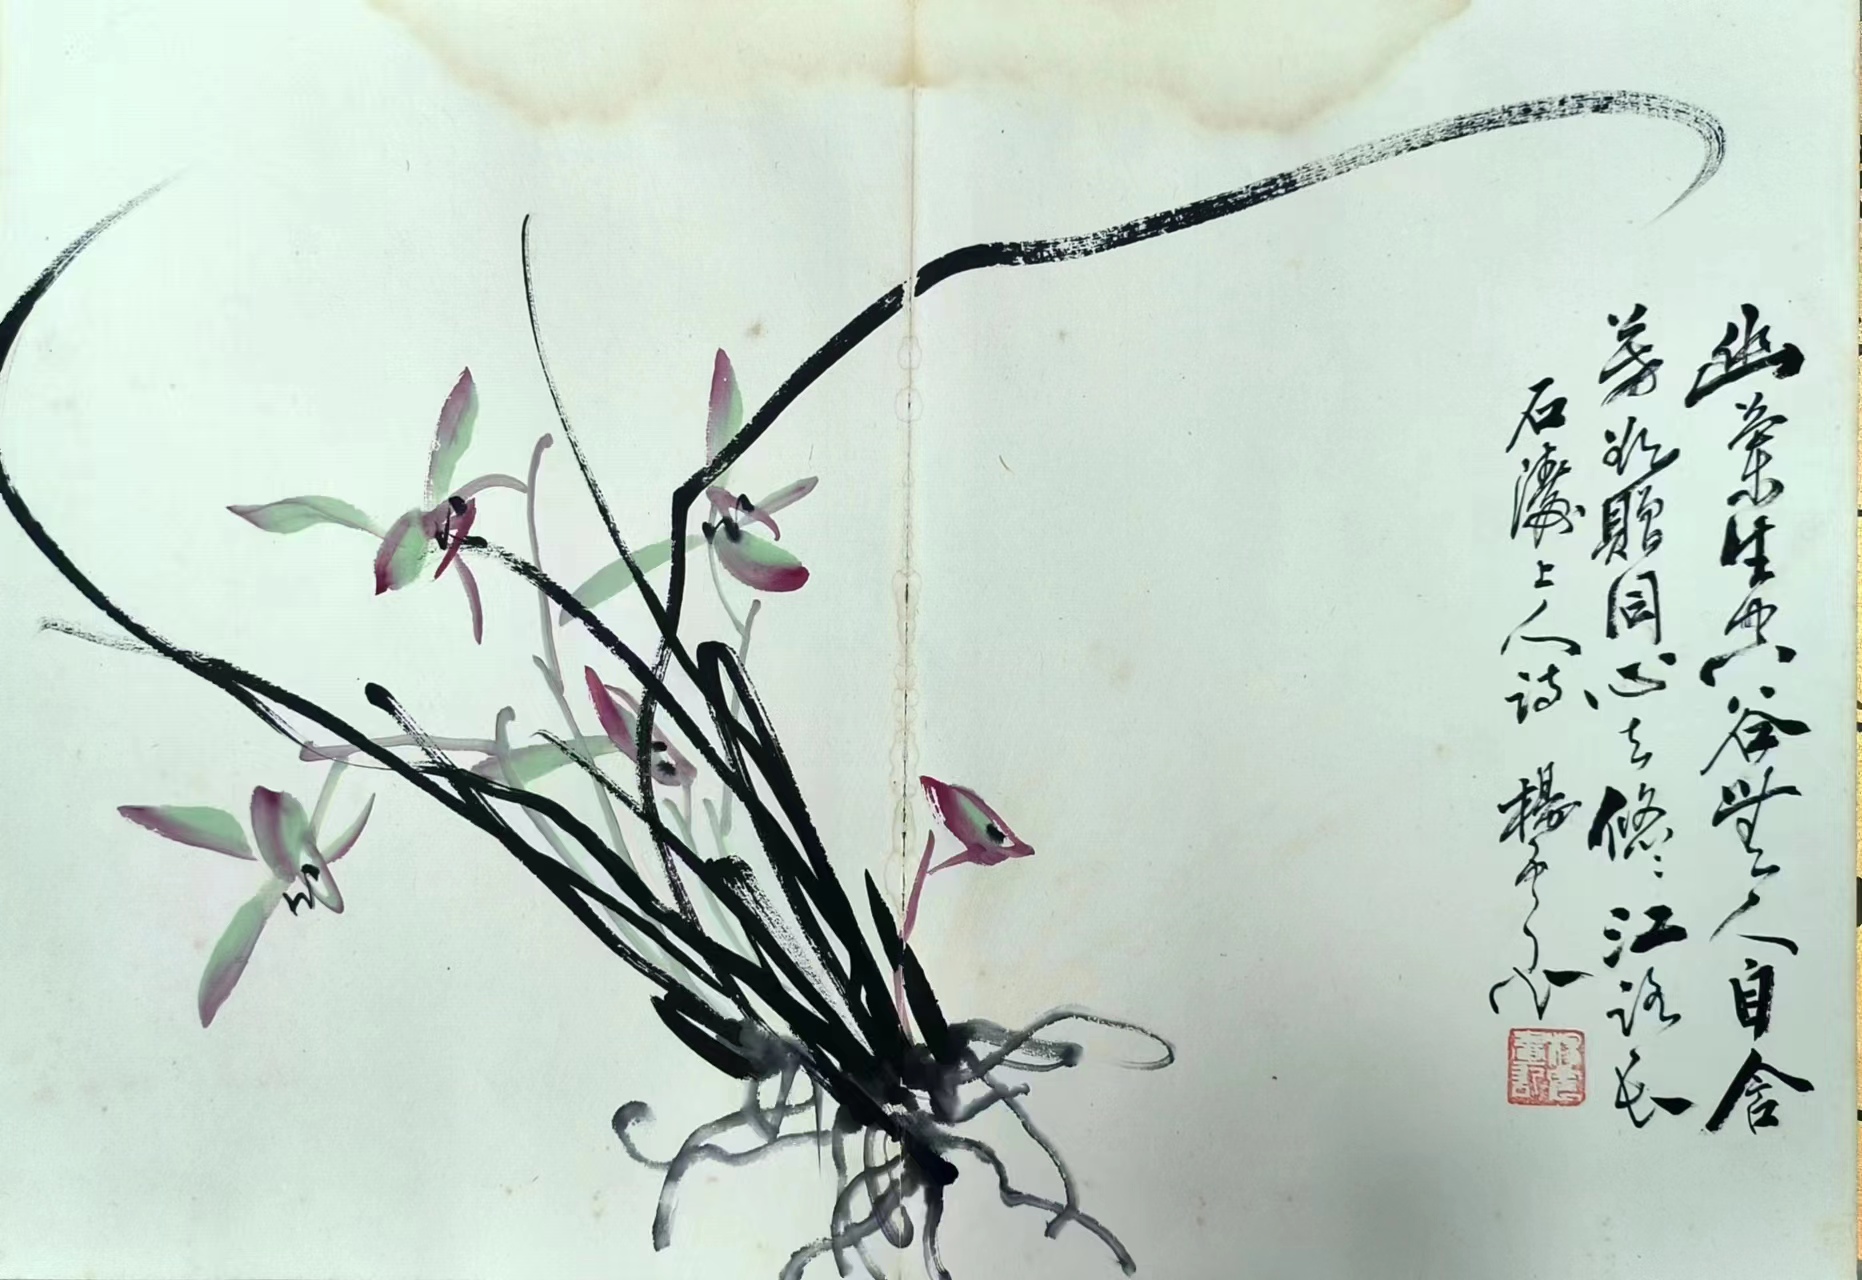 幽蘭生空谷無人自含
芳欲贈同心去悠〻江路長
石濤上人詩 楊